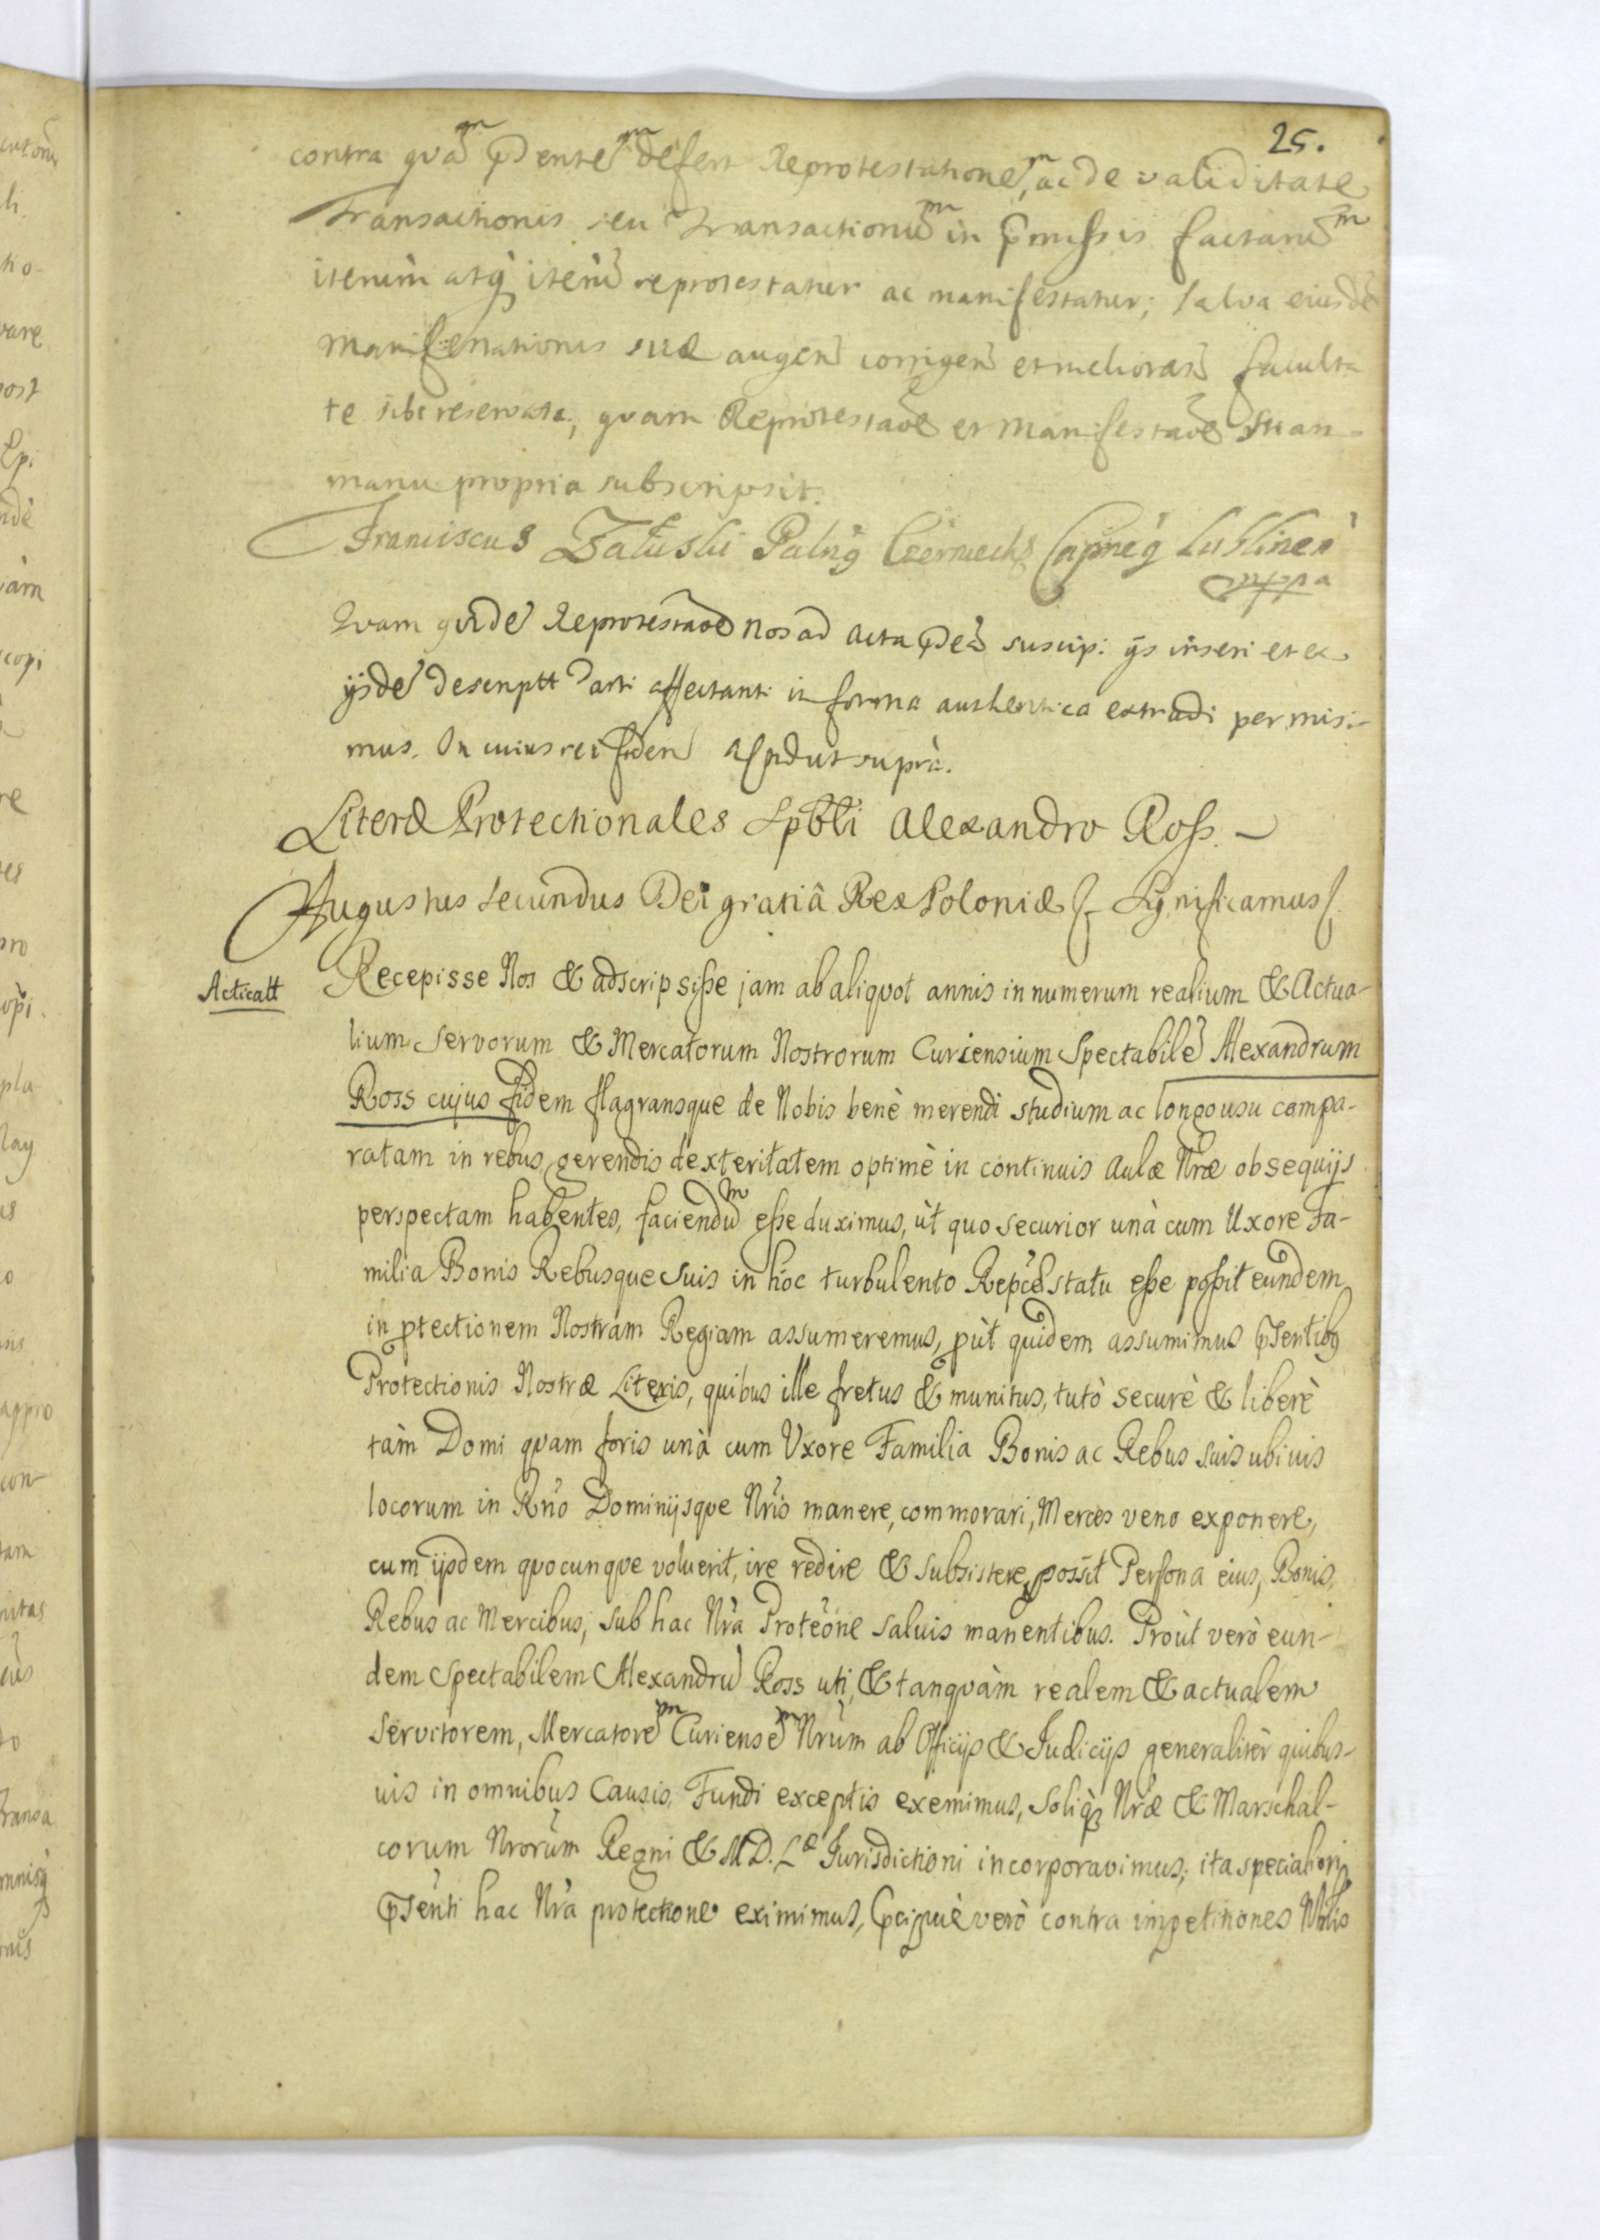 25.
contra quãm pñdentem defert Reprotestationem, ac de validitate
Transactionis seu Transactionum in pmissis factarum
iterùm atq̀ iterũ reprotestatur ac manifestatur; salva eiusdẽ
manifestationis suæ augen̄ corrigen̄ et melioran̄ faculta
te sibi reservata, quam Reprotestaõe et manifestaõe suan-
manu propria subscripsit.
Franciscus Załuski Palñg Czerniechs Capneq̀ Lublineñ
mppa
Quam quidẽ Reprotestaõe Nos ad Acta suscip: ijs inseri et ex
ijsdẽ descriptt Parti affectanti in forma authentica extradi permisi-
mus. In cuius rei fidem ut suprà.
Literæ Protectionales Spbli Alexandro Ross. -
Augustus Secundus Dei gratiâ Rex Poloniæ Significamus
Acticatt
Recepisse Nos & adscripsisse jam ab aliquot annis in numerum realium & Actua-
lium Servorum & Mercatorum Nostrorum Curiensium Spectabilẽ Alexandrum
Ross cujus fidem flagransque de Nobis benè merendi studium ac longo usu compa-
ratam in rebus gerendis dexteritatem optimè in continuis Aulæ Nræ obsequijs
perspectam habentes, faciendum esse duximus, ùt quo securior unà cum Uxore Fa-
milia Bonis Rebusque Suis in hoc turbulento Repcæ statu esse possit eundem
in ptectionem Nostram Regiam assumeremus, pùt quidem assumimus pñsentibq
Protectionis Nostræ Literis, quibus ille fretus & munitus, tutò securè & liberè
tàm Domi quam foris unà cum Uxore Familia Bonis ac Rebus suis ubi uis
locorum in Rño Dominijsque Nris manere, commorari, Merces veno exponere,
cum ijsdem quocunque voluerit, ire redire & subsistere possit Persona eius, Bonis,
Rebus ac Mercibus, sub hac Nrà Proteõne saluis manentibus. Proùt verò eun-
dem Spectabilem Alexandrũ Ross uti & tanquàm realem & actualem
Servitorem, Mercatorem Curiensem Nrùm ab Officijs & Judicijs generalitèr quibus-
uis in omnibus Causis Fundi exceptis exemimus, Soliq̀ Nræ & Marschal-
corum Nrorùm Regni & M.D. Læ Jurisdictioni incorporavimus; ita speciàliori
pñsenti hac Nrà protectione eximimus, pcipuè verò contra impetitiones